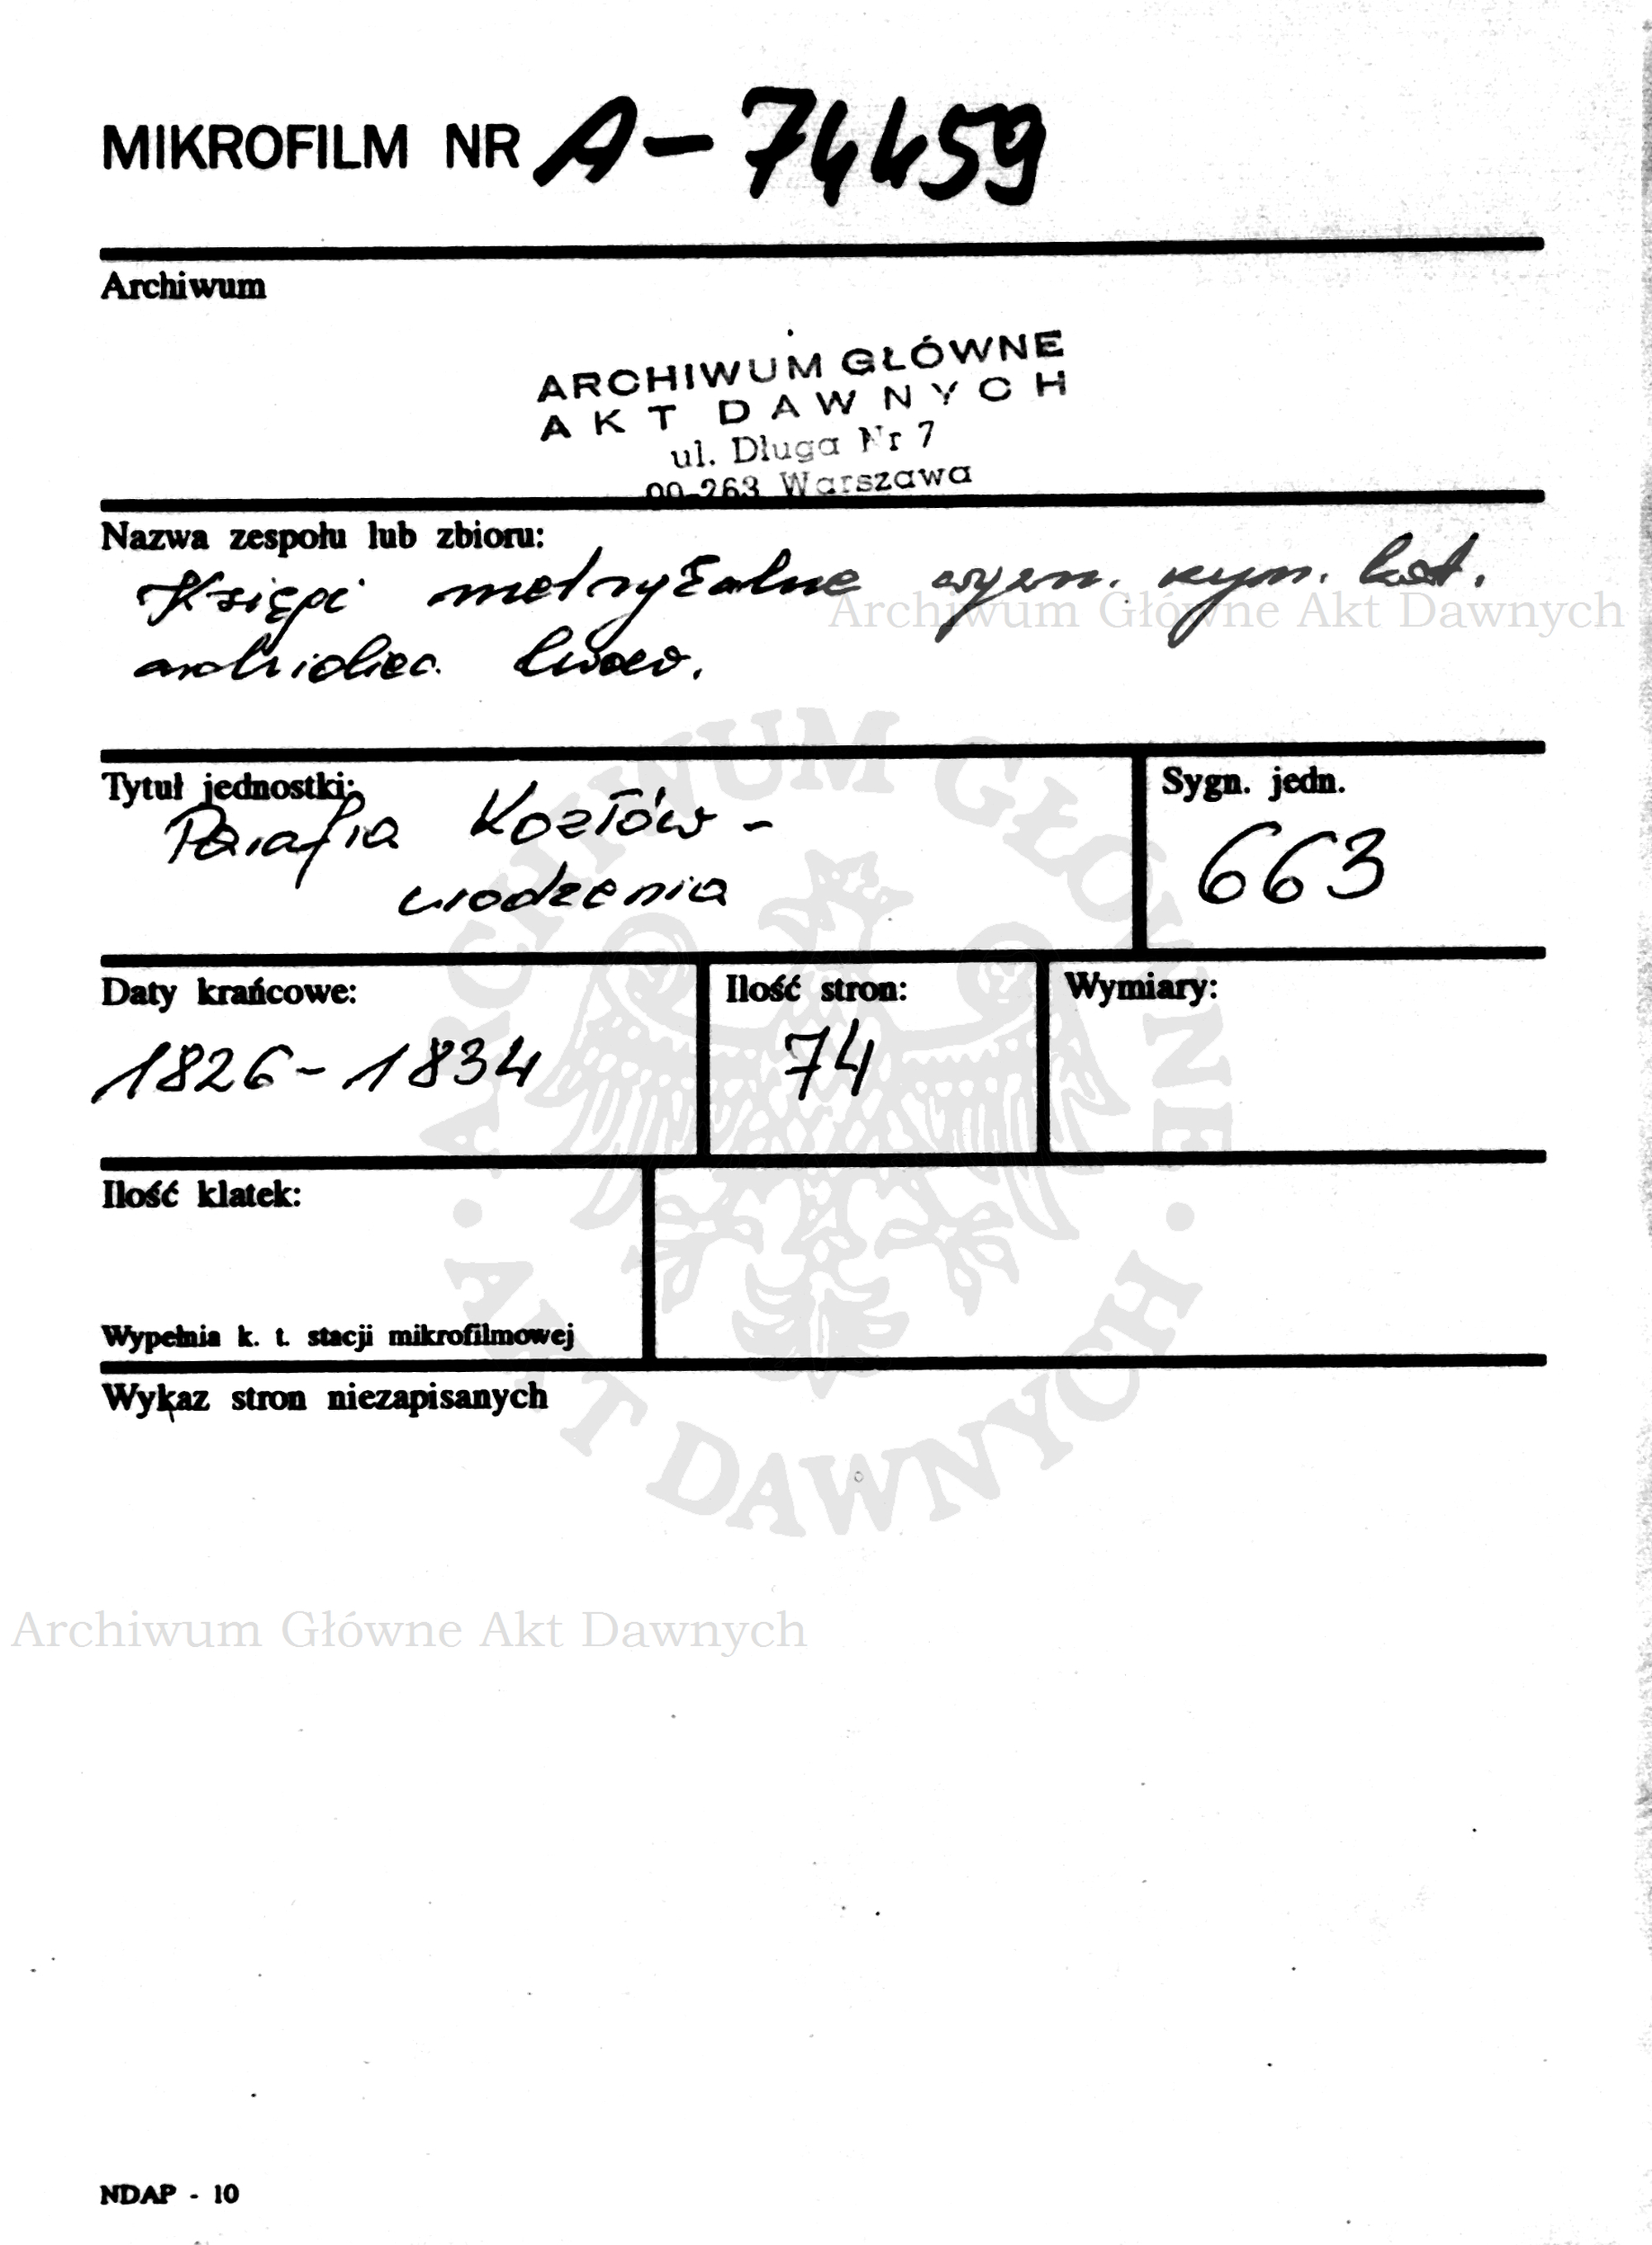 MIKROFILM NR A-74459
Archiwum
ARCHIWUM GŁÓWNE
AKT DAWNYCH
ul. Długa Nr 7
00-263 Warszawa
Nazwa zespołu lub zbioru:
Księgi metrykalne wyzn. rzym. kat.
Archiwum Główne Akt Dawnych
archidiec. lwow.
Tytuł jednostki:
Parafia Kozłów -
urodzenia
Sygn. jedn.
663
Daty krańcowe:
1826-1834
Ilość stron:
74
Wymiary:
Ilość klatek:
Wypełnia k. t. stacji mikrofilmowej
Wykaz stron niezapisanych
ARCHIWUM GŁÓWNE
· AKT DAWNYCH ·
Archiwum Główne Akt Dawnych
NDAP - 10